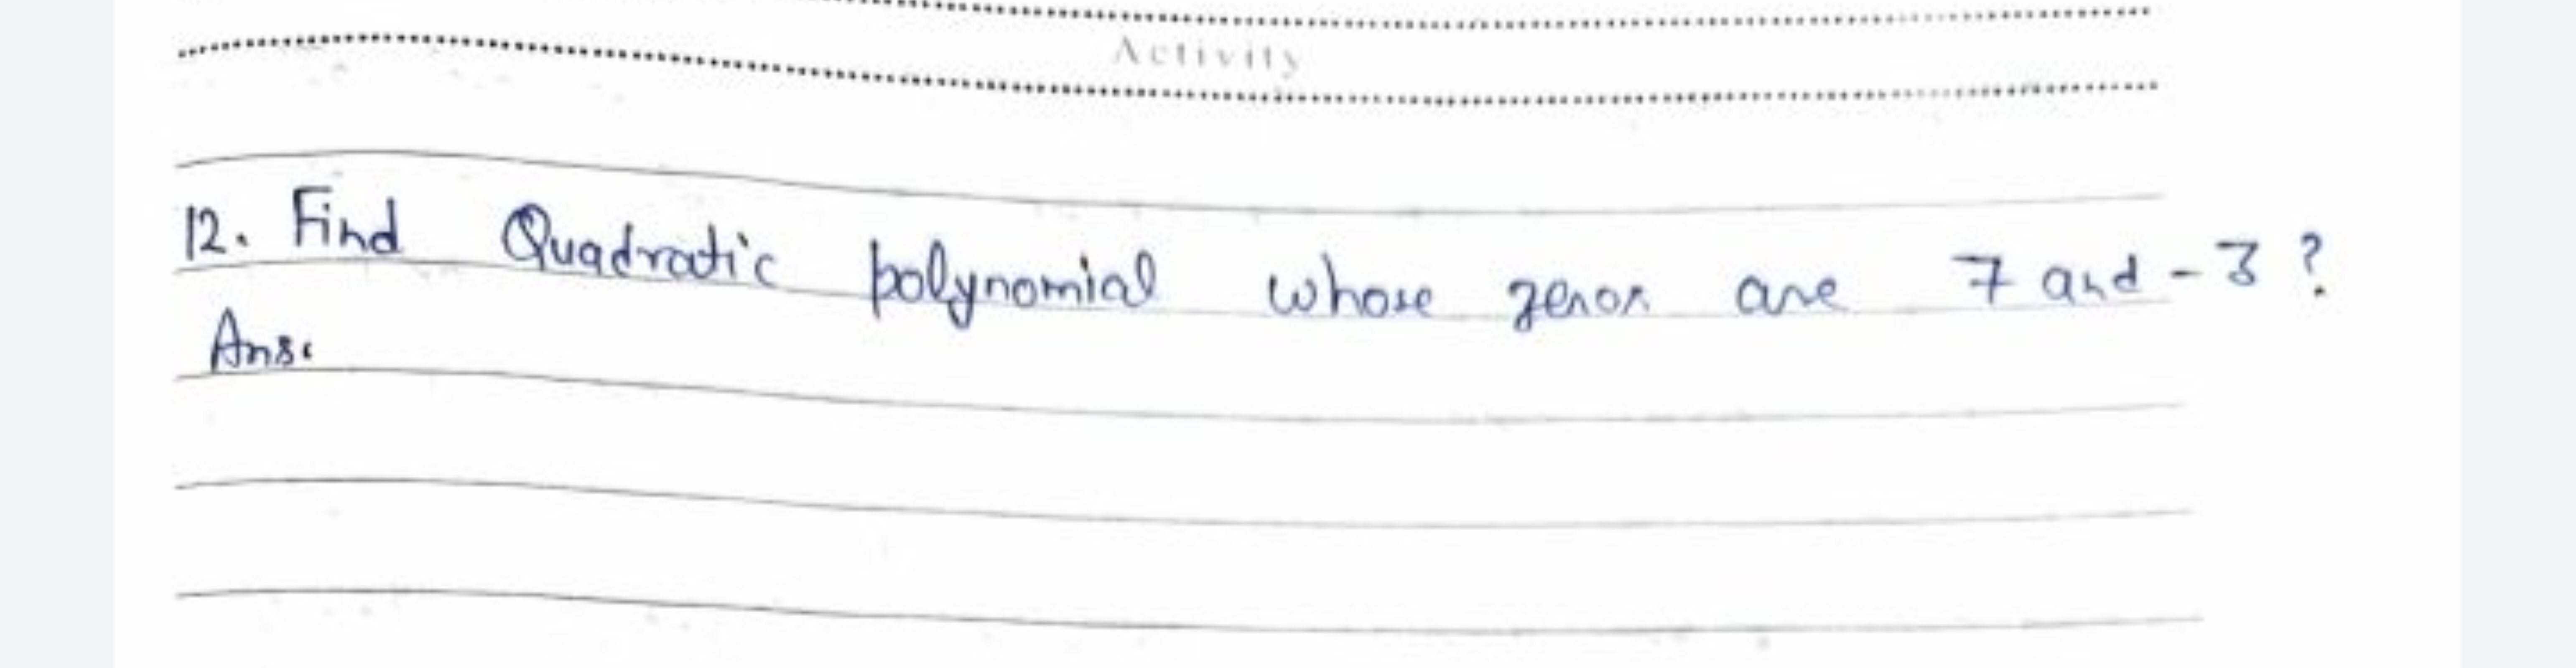 Activity
12. Find Quadratic polynomial whose zeros are 7 and - 3 ?
Ans: